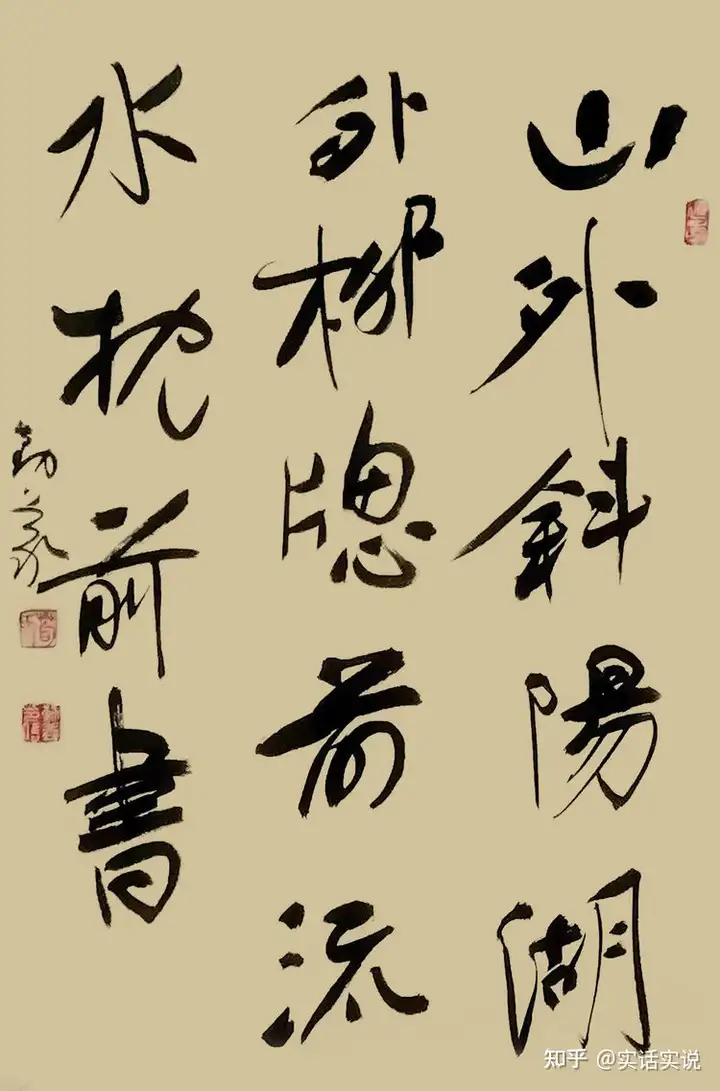 山外斜陽湖
外柳牕前流
水枕前書
知乎 @实话实说